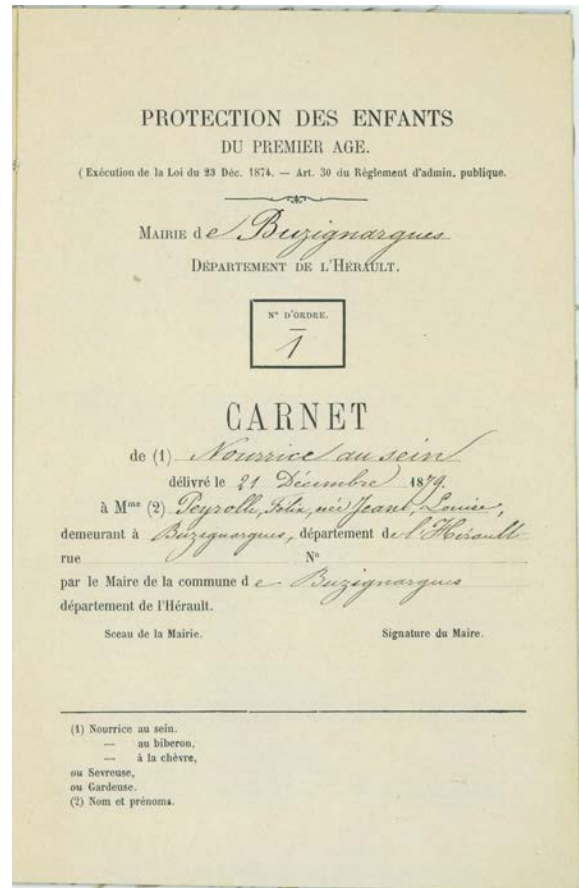 PROTECTION DES ENFANTS
DU PREMIER AGE.
(Exécution de la Loi du 23 Déc. 1874. — Art. 30 du Règlement d'admin. publique.
MAIRIE de Buzignargues
DÉPARTEMENT DE L'HÉRAULT.
N° D'ORDRE.
1
CARNET
de (1) Nourrice au sein
délivré le 21 Décembre 1879.
à Mme (2) Peyrolle, Félix, née Jeant, Louise,
demeurant à Buzignargues, département de l'Hérault
rue N°
par le Maire de la commune de Buzignargues
département de l'Hérault.
Sceau de la Mairie. Signature du Maire.
(1) Nourrice au sein.
— au biberon,
— à la chèvre,
ou Sevreuse,
ou Gardeuse.
(2) Nom et prénoms.